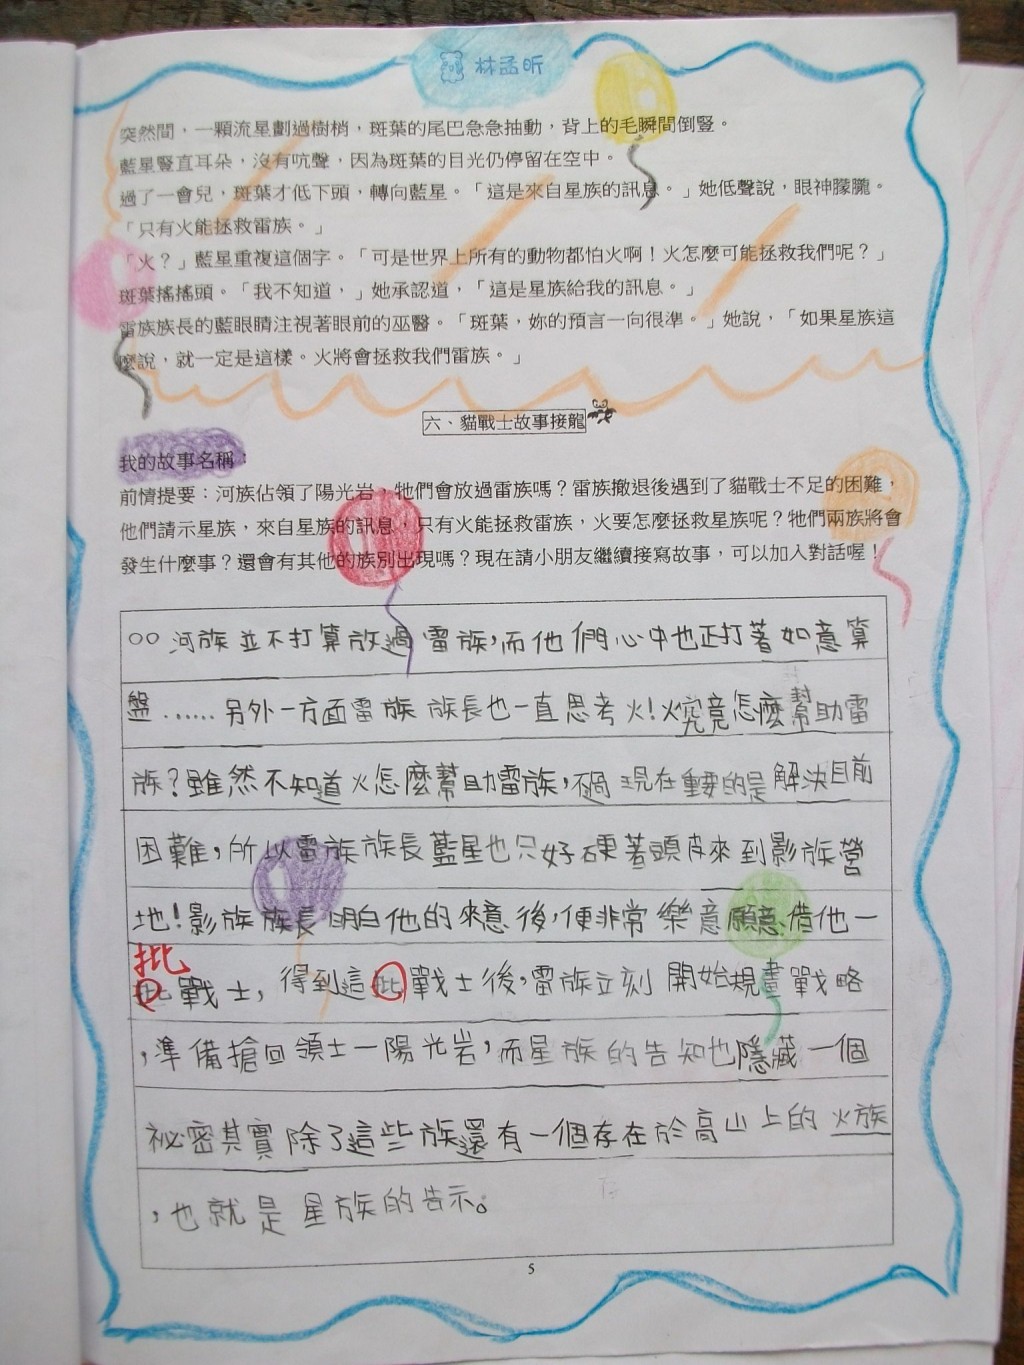 林孟昕
突然間，一顆流星劃過樹梢，斑葉的尾巴急急抽動，背上的毛瞬間倒豎。
藍星豎直耳朵，沒有吭聲，因為斑葉的目光仍停留在空中。
過了一會兒，斑葉才低下頭，轉向藍星。「這是來自星族的訊息。」她低聲說，眼神朦朧。
「只有火能拯救雷族。」
「火？」藍星重複這個字。「可是世界上所有的動物都怕火啊！火怎麼可能拯救我們呢？」
斑葉搖搖頭。「我不知道，」她承認道，「這是星族給我的訊息。」
雷族族長的藍眼睛注視著眼前的巫醫。「斑葉，妳的預言一向很準。」她說，「如果星族這
麼說，就一定是這樣。火將會拯救我們雷族。」
六、貓戰士故事接龍
我的故事名稱：
前情提要：河族佔領了陽光岩，牠們會放過雷族嗎？雷族撤退後遇到了貓戰士不足的困難，
他們請示星族，來自星族的訊息，只有火能拯救雷族，火要怎麼拯救星族呢？牠們兩族將會
發生什麼事？還會有其他的族別出現嗎？現在請小朋友繼續接寫故事，可以加入對話喔！
○○河族並不打算放過雷族，而他們心中也正打著如意算
盤……另外一方面雷族族長也一直思考火！火究竟怎麼幫助雷
族？雖然不知道火怎麼幫助雷族，不過現在重要的是解決目前
困難，所以雷族族長藍星也只好硬著頭皮來到影族營
地！影族族長明白他的來意後，便非常樂意願意借他一
批
批戰士，得到這批戰士後，雷族立刻開始規畫戰略
，準備搶回領土一陽光岩，而星族的告知也隱藏一個
祕密其實除了這些族還有一個存在於高山上的火族
，也就是星族的告示。
5